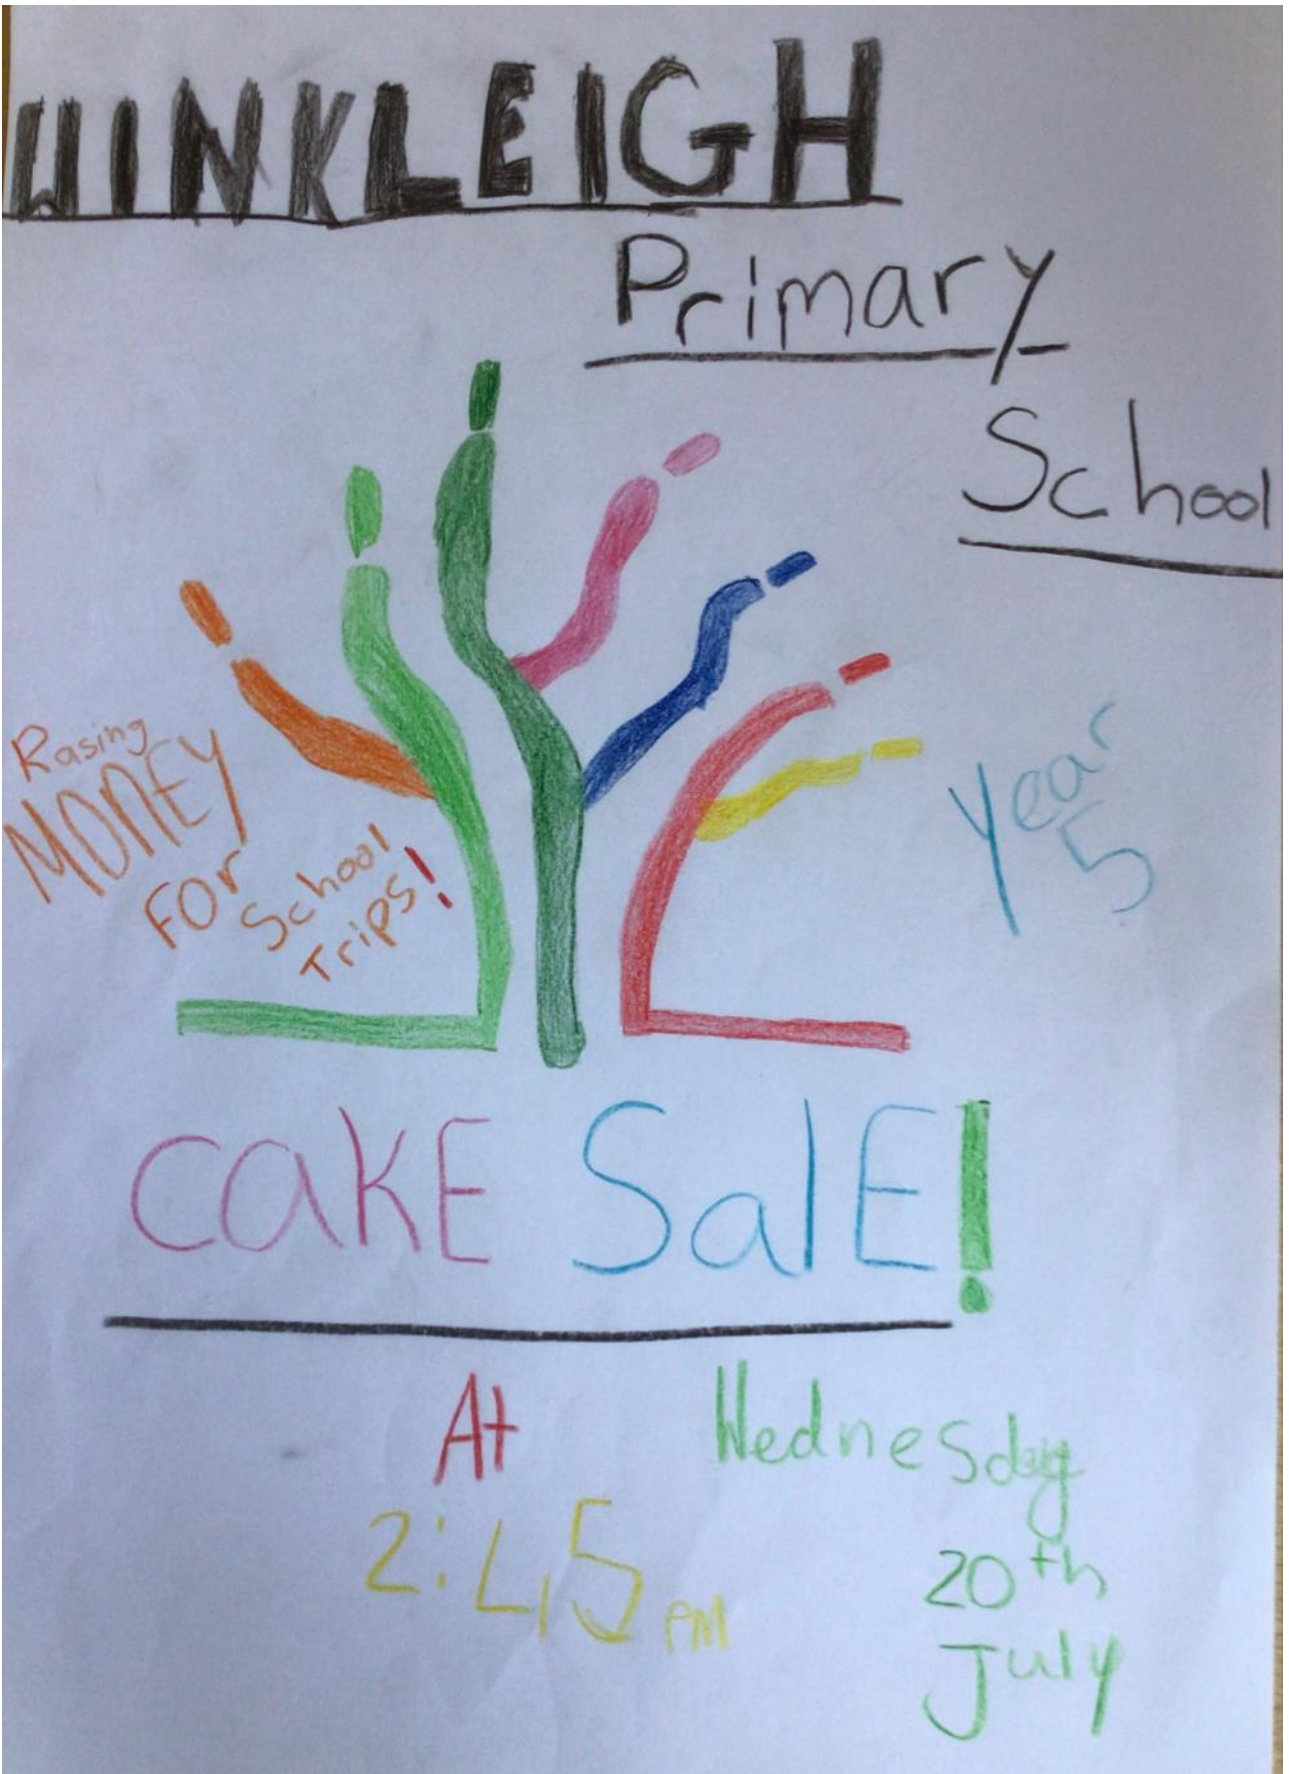 WINKLEIGH
Primary
School
Rasing
MONEY
FOr
School
Trips!
Year
5
CAKE SalE!
At
2:45 PM
Wednesday
20th
July